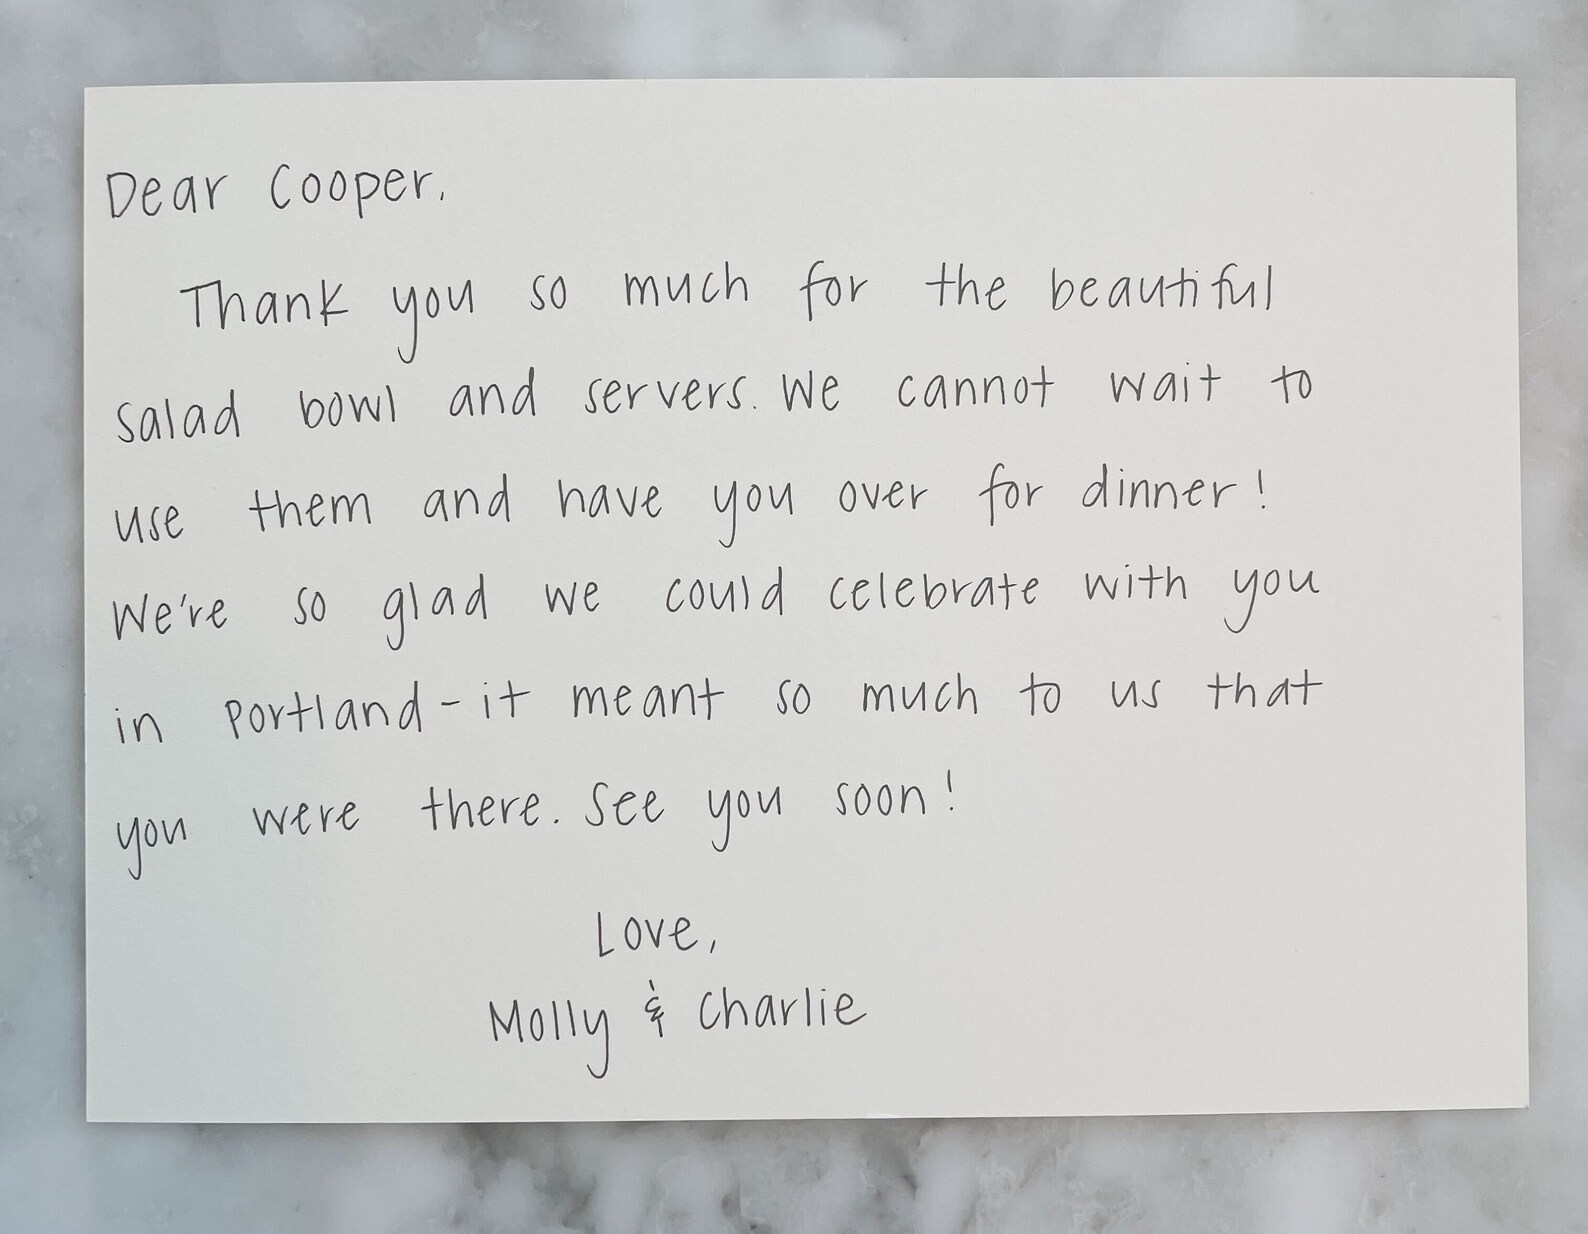 Dear Cooper,
Thank you so much for the beautiful
salad bowl and servers. We cannot wait to
use them and have you over for dinner!
We're so glad we could celebrate with you
in Portland - it meant so much to us that
you were there. See you soon!
Love,
Molly & Charlie